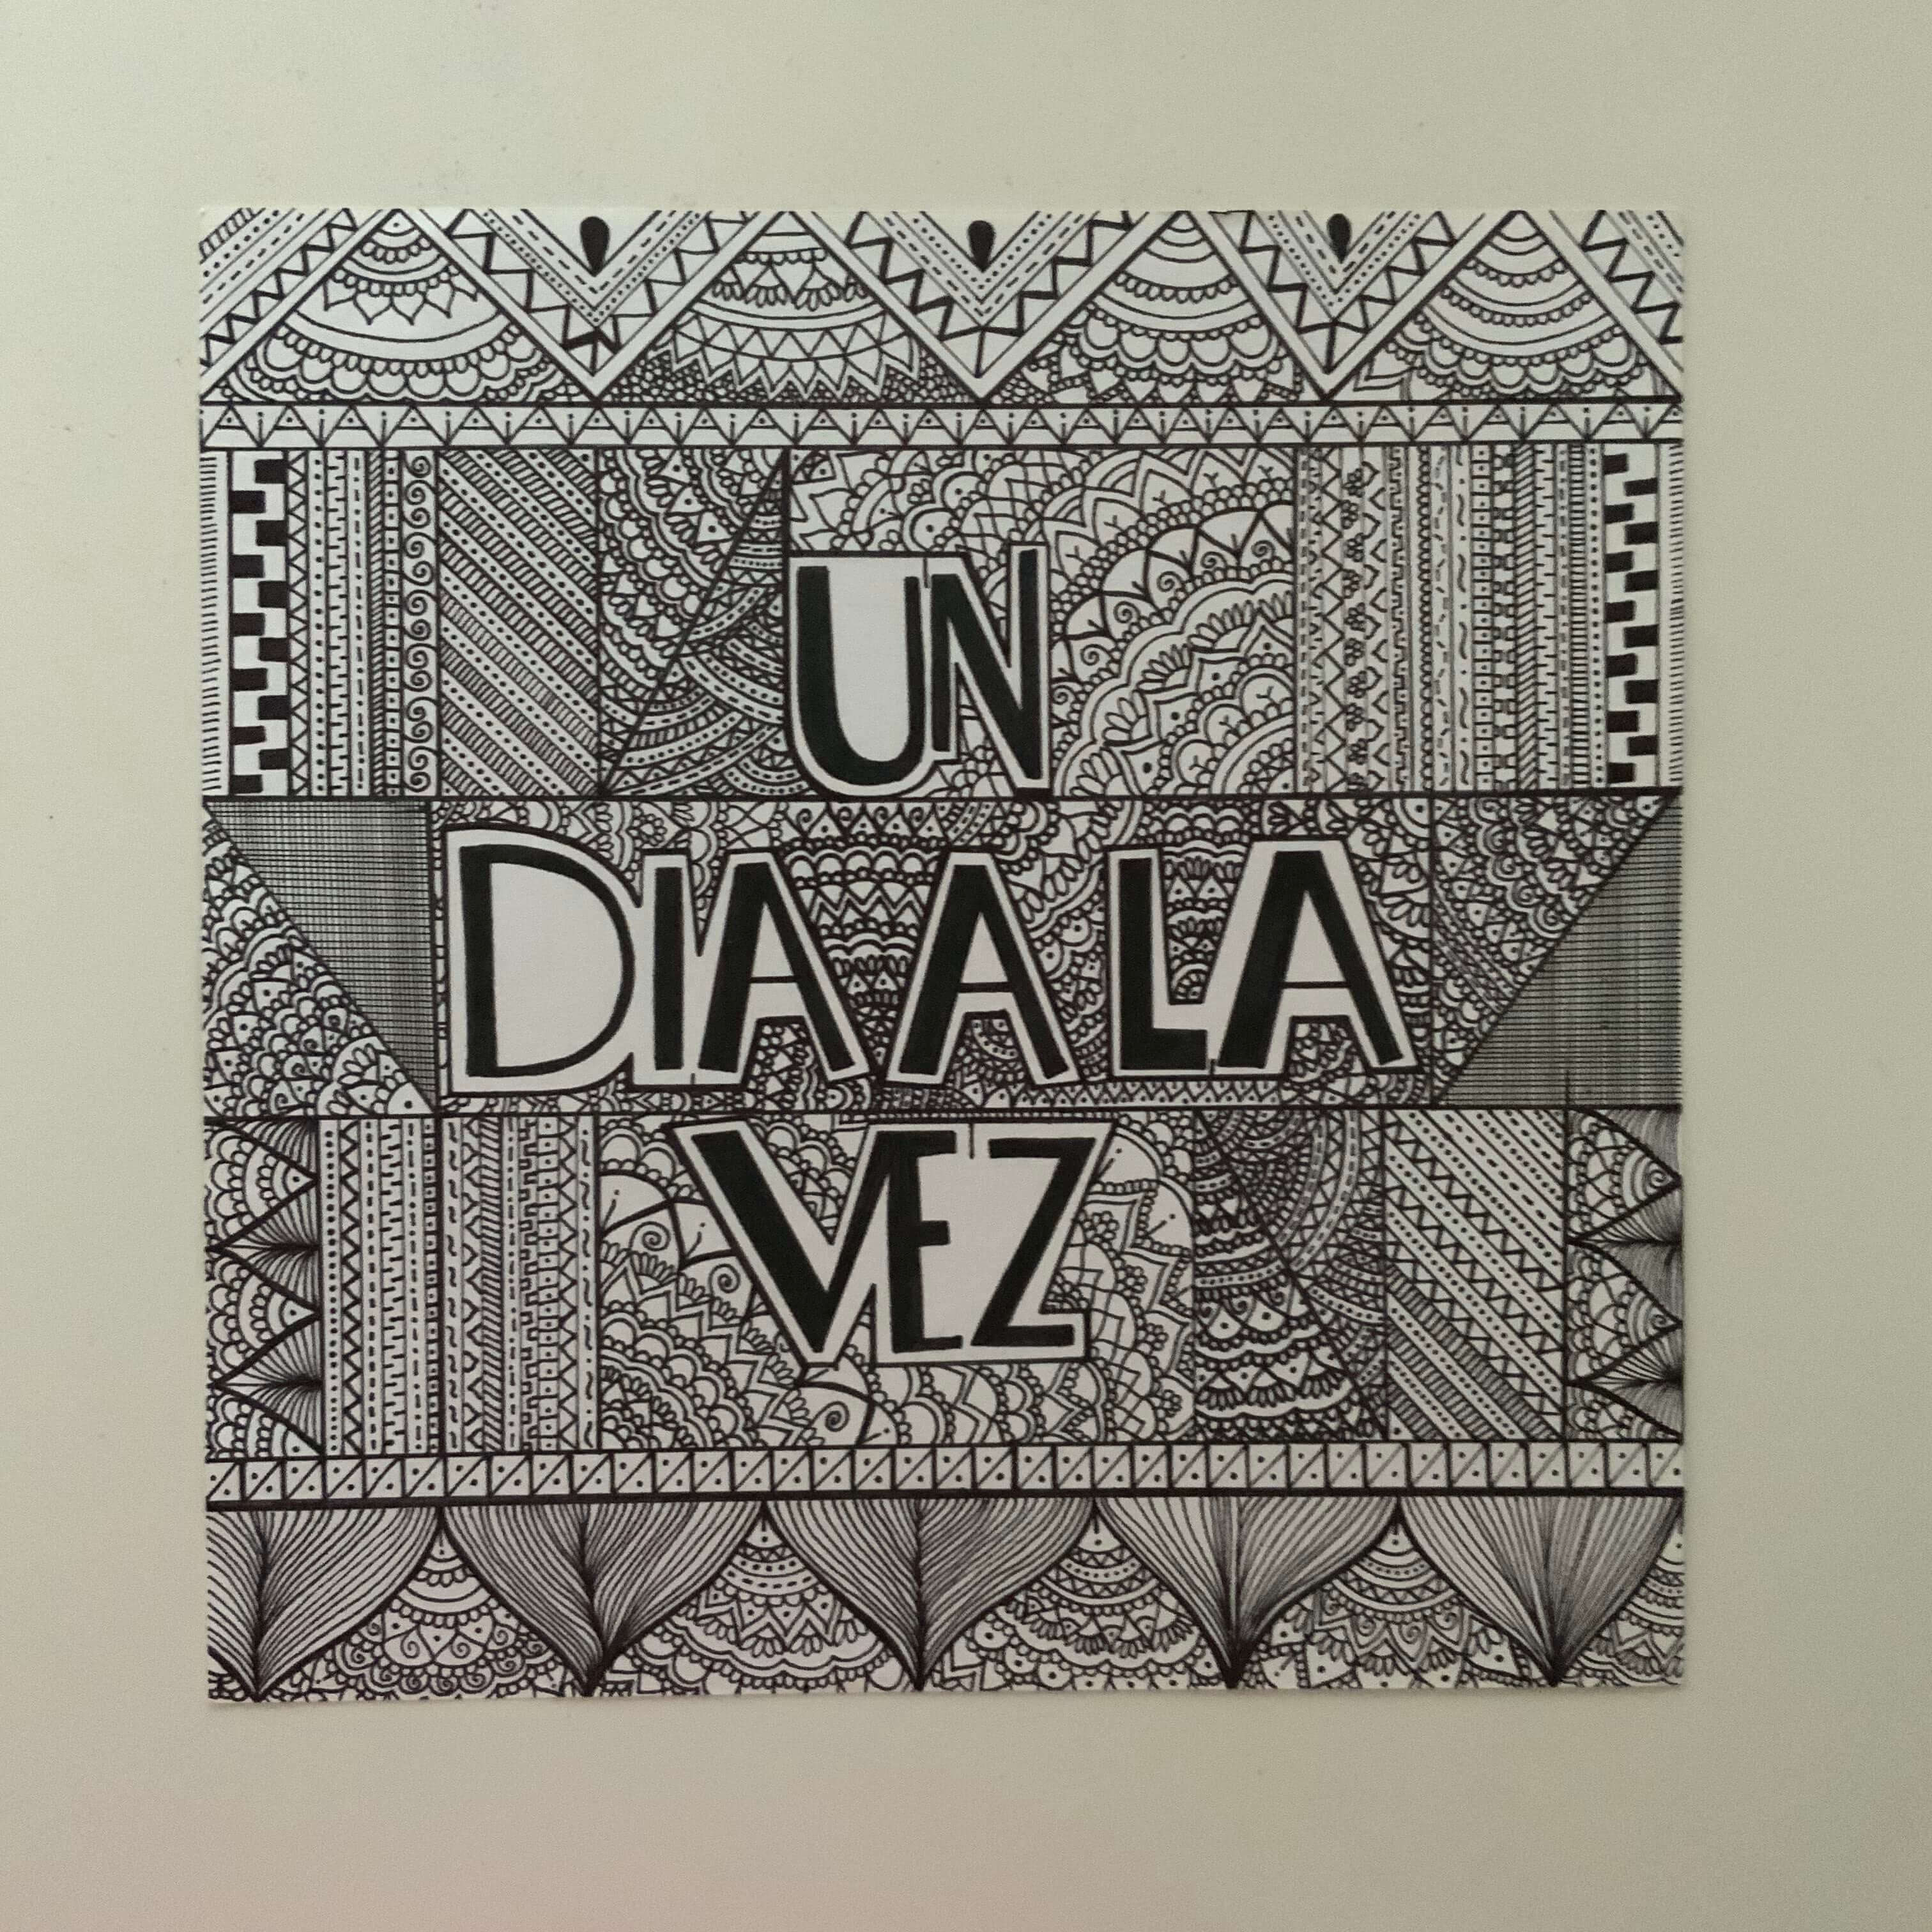 UN
DIA A LA
VEZ